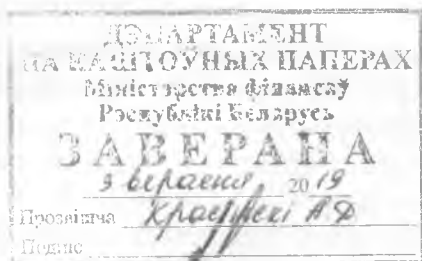 ДЭПАРТАМЕНТ
ПА КАШТОЎНЫХ ПАПЕРАХ
Міністэрства фінансаў
Рэспублікі Беларусь
ЗАВЕРАНА
9 верасня 2019
Прозвішча А Ф
Подпіс